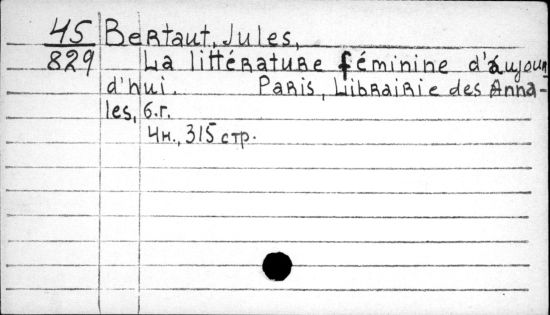 45 Bertaut, Jules,
829 La littérature féminine d'aujour
d'hui. Paris, Librairie des Anna-
les, б.г.
4н., 315 стр.